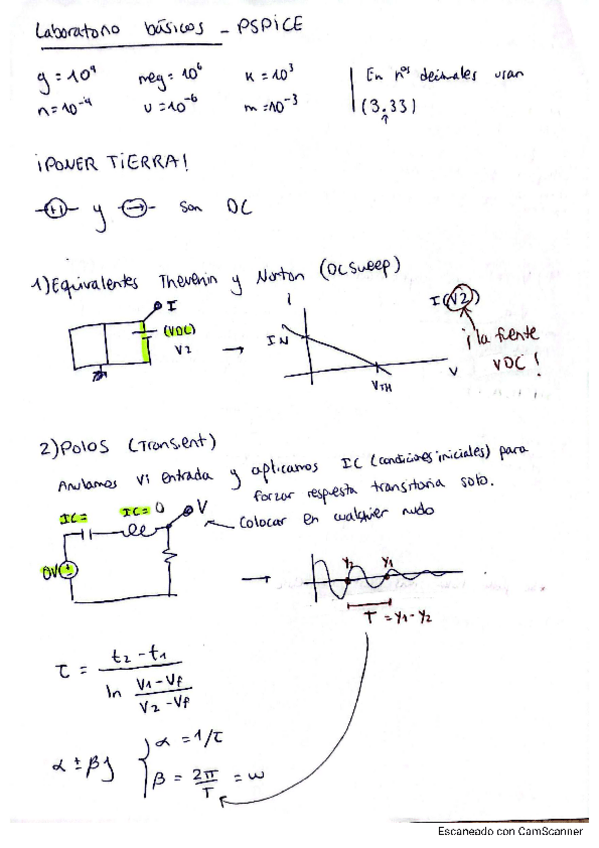 Laboratorio básicos - PSPICE
g = 10⁹ meg = 10⁶ k = 10³ En nºs decimales usan
n = 10⁻⁹ u = 10⁻⁶ m = 10⁻³ (3.33)
¡PONER TIERRA!
y son DC
1) Equivalentes Thevenin y Norton (DCSweep)
I
(VDC)
V2
I
IN
VTH
V
I(V2)
¡la fuente
VDC!
2) Polos (Transient)
Anulamos Vi entrada y aplicamos IC (condiciones iniciales) para
forzar respuesta transitoria solo.
IC= IC= 0 V
Colocar en cualquier nudo
0V
y2 y1
T = y1 - y2
τ = t2 - t1 / ln V1 - Vf / V2 - Vf
α ± βj
α = 1/τ
β = 2π/T = w
Escaneado con CamScanner